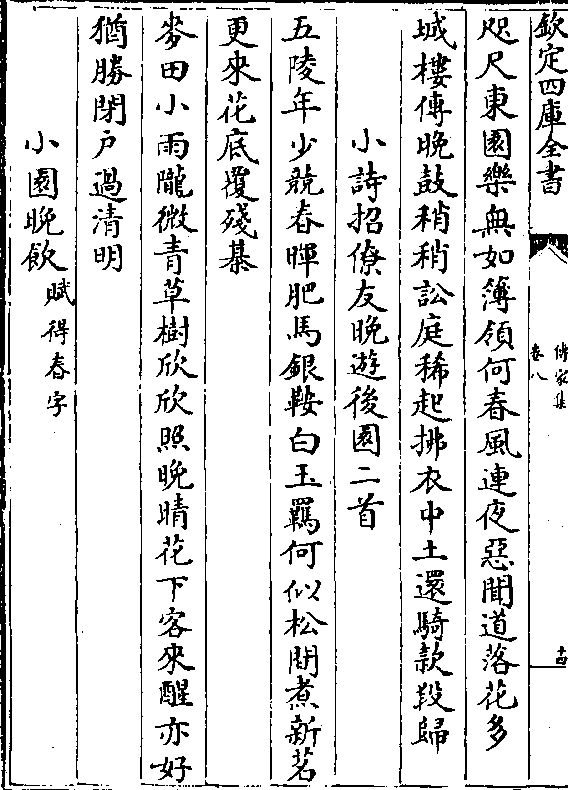 欽定四庫全書
傳家集
卷八
十四
咫尺東園樂無如簿領何春風連夜惡聞道落花多
城樓傳晚鼓稍稍訟庭稀起拂衣中土還騎款段歸
小詩招僚友晚遊後園二首
五陵年少競春暉肥馬銀鞍白玉羈何似松閒煮新茗
更來花底覆殘棊
麥田小雨隴微青草樹欣欣照晚晴花下客來醒亦好
猶勝閉戶過清明
小園晚飲賦得春字